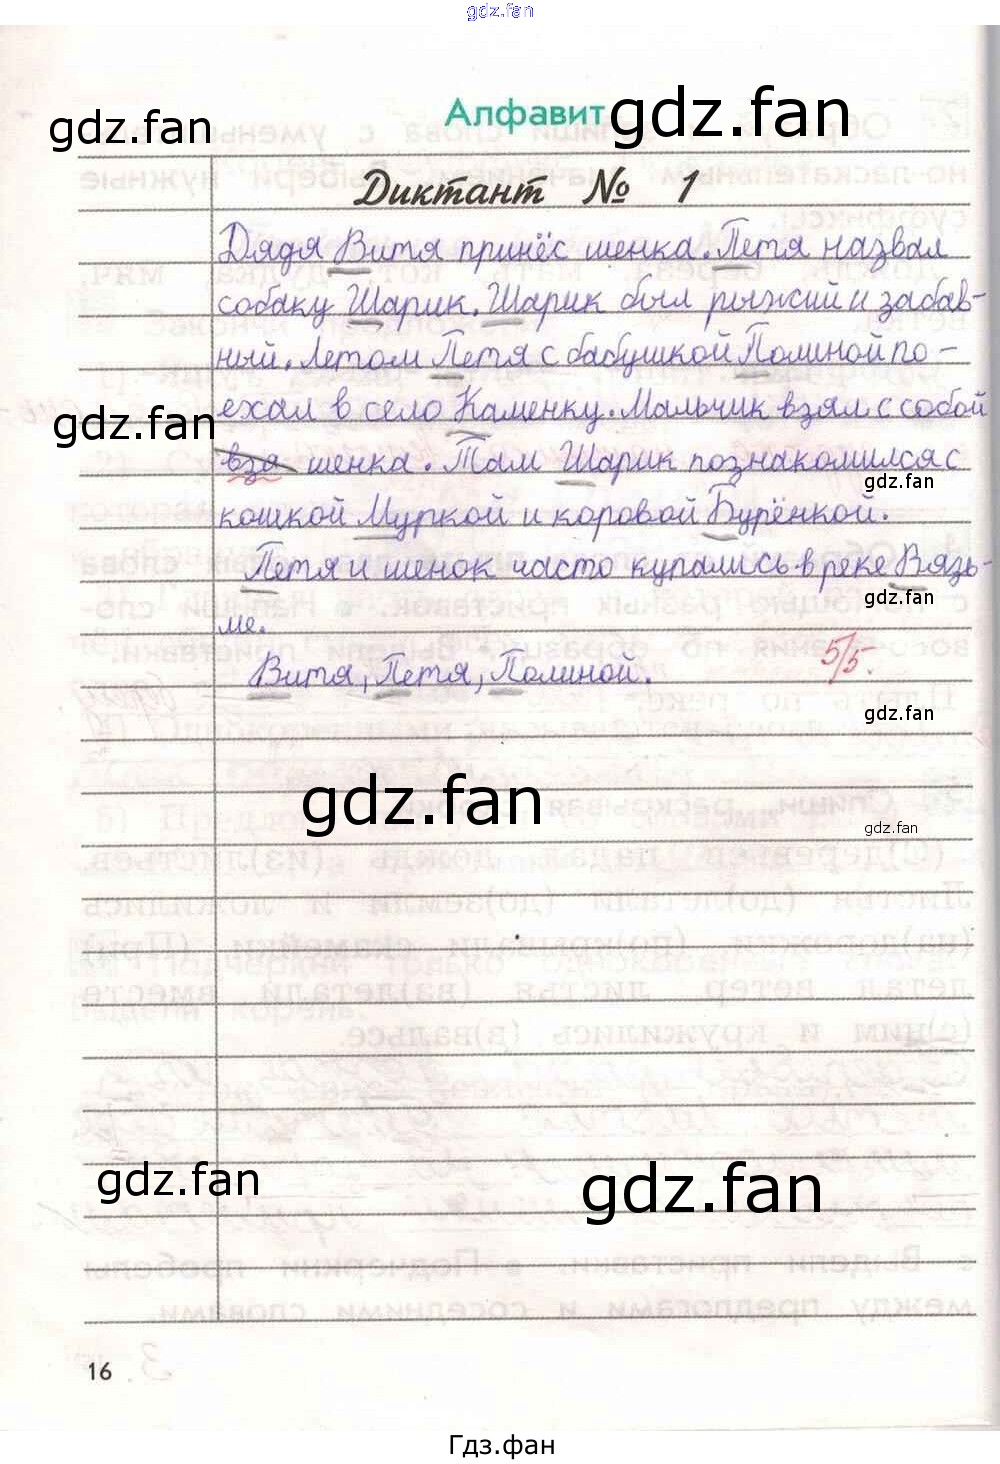 gdz.fan
Алфавит gdz.fan
gdz.fan
Диктант № 1
Дядя Витя принёс щенка. Петя назвал
собаку Шарик. Шарик был рыжий и забав-
ный. Летом Петя с бабушкой Полиной по-
ехал в село Каменку. Мальчик взял с собой
gdz.fan
взя щенка. Там Шарик познакомился с
gdz.fan
кошкой Муркой и коровой Бурёнкой.
Петя и щенок часто купались в реке Вязь-
gdz.fan
ме.
5/5.
Витя, Петя, Полиной.
gdz.fan
gdz.fan
gdz.fan
gdz.fan
gdz.fan
16
Гдз.фан